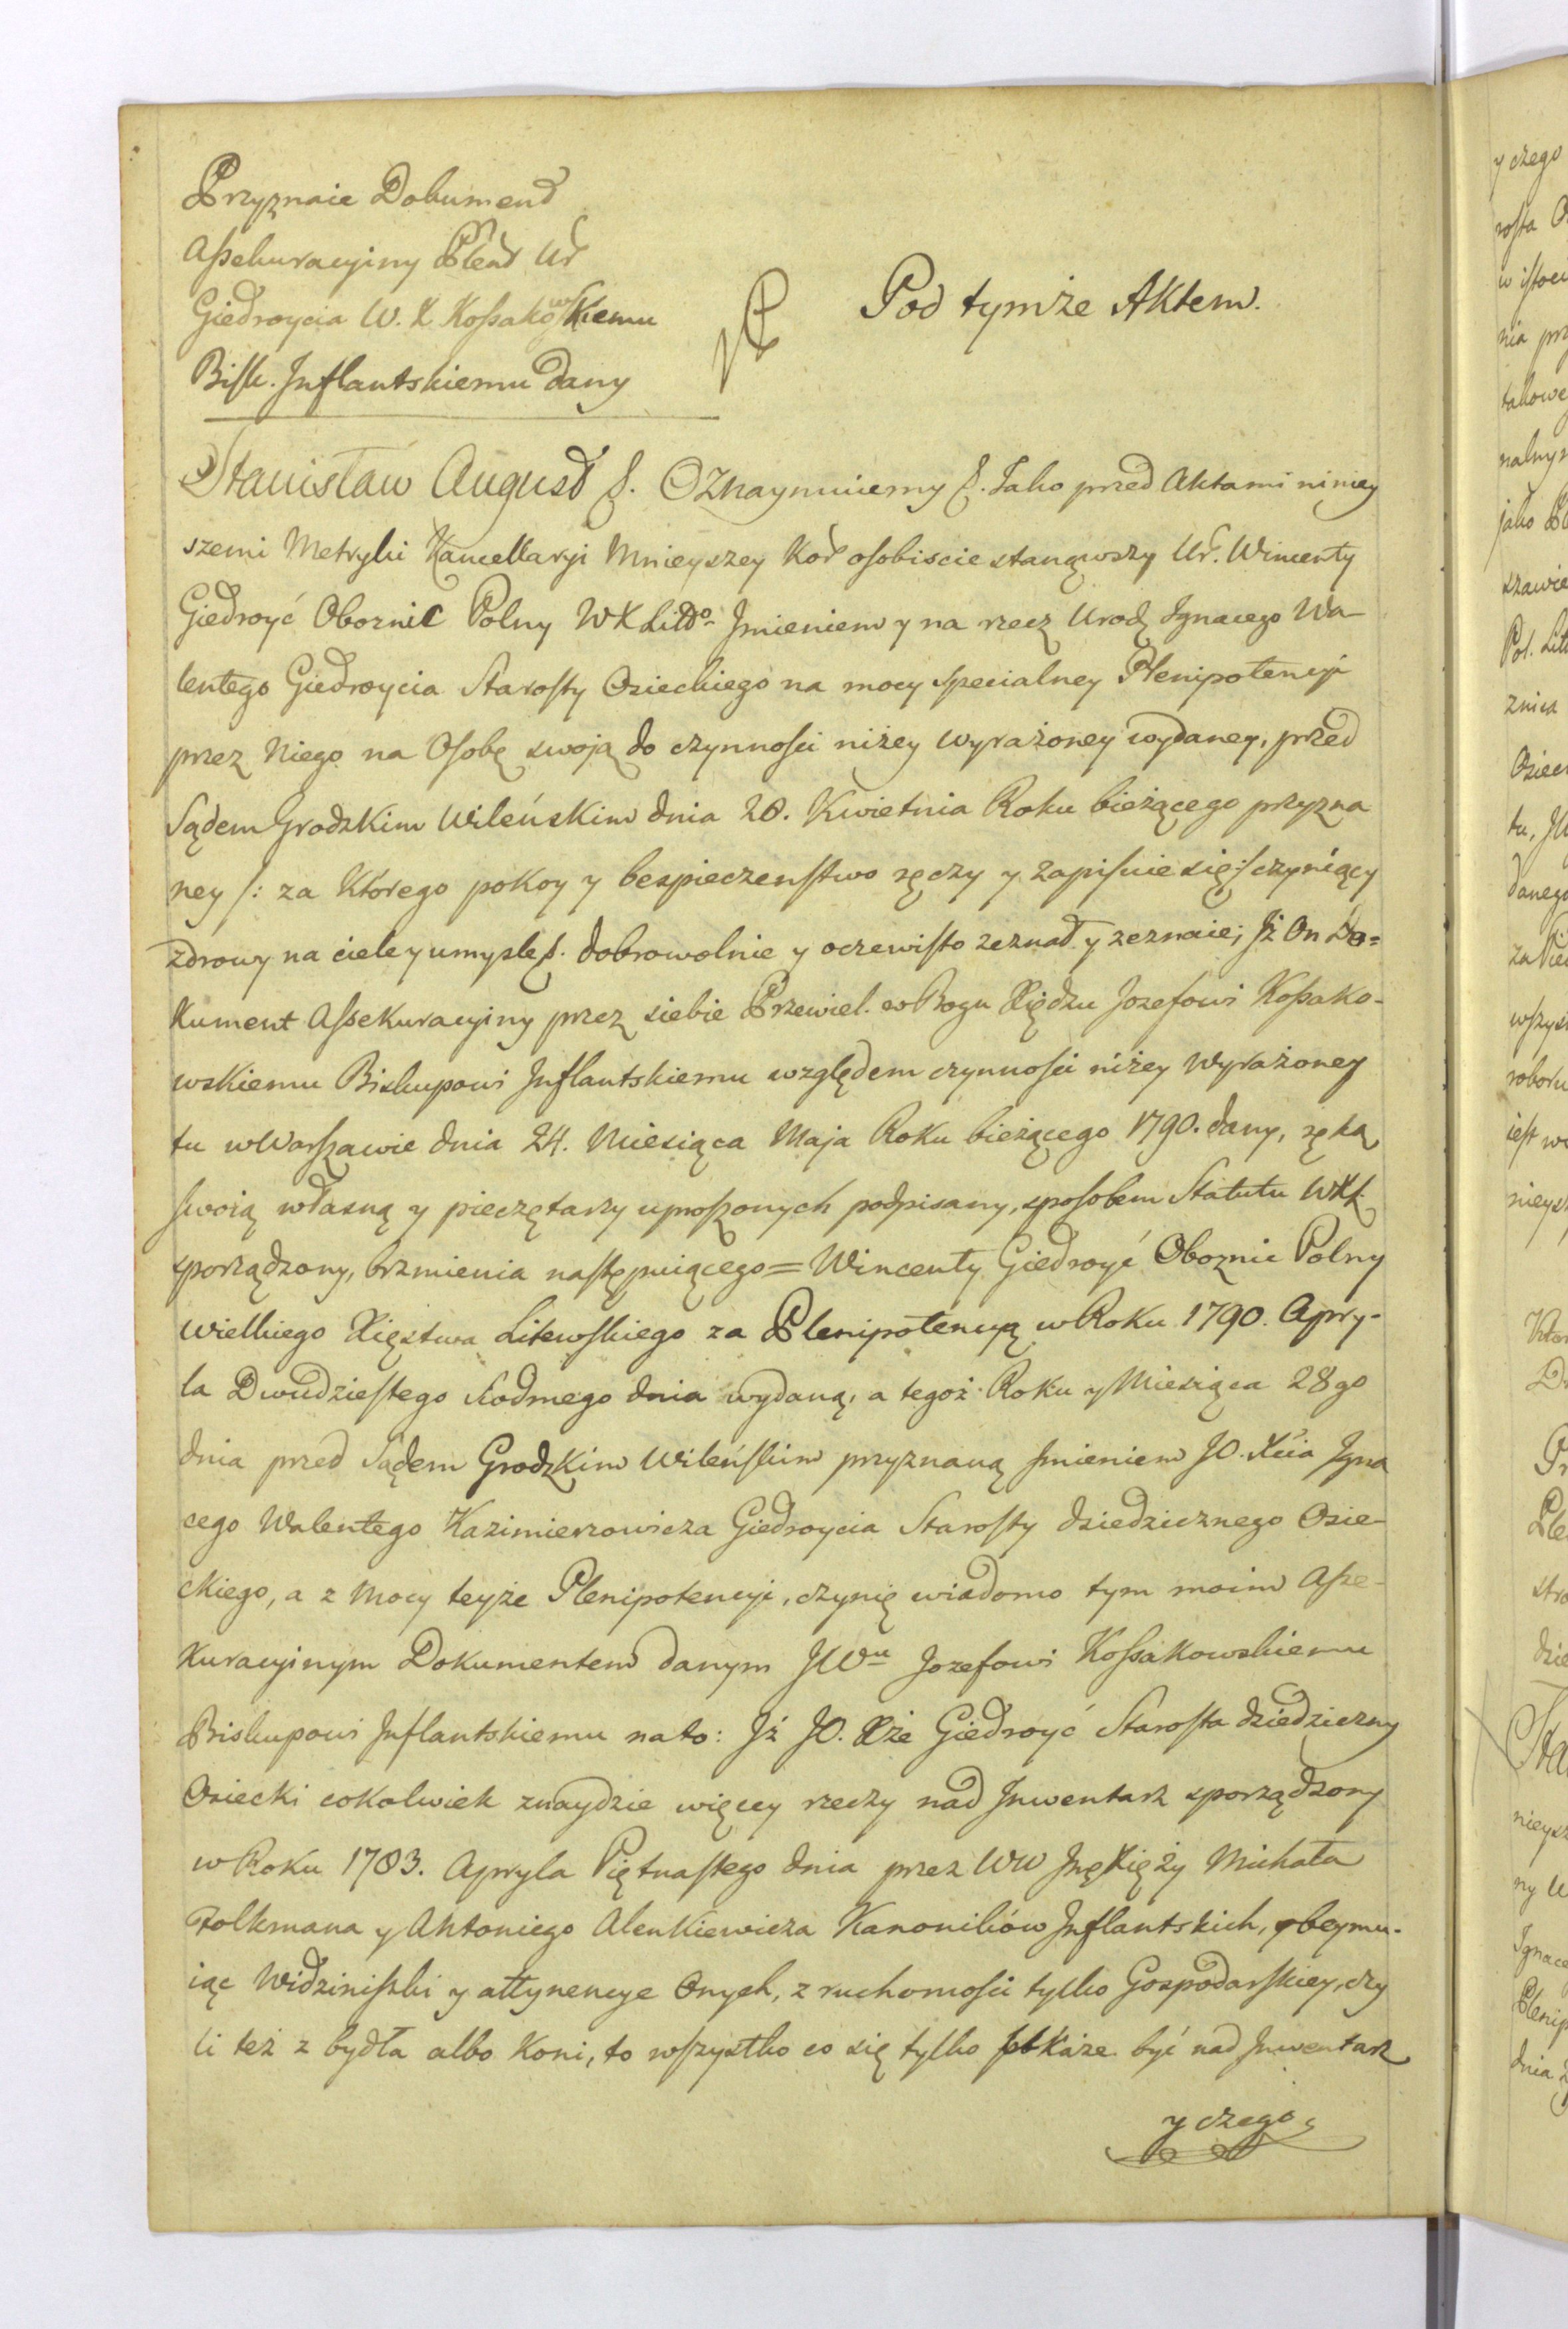 Przyznaie Dokument
Assekuracyiny Plent Ur
Giedroycia W. X Kossakowskiemu
Bisk. Inflantskiemu dany
Pod tymże Aktem.
Stanisław August &. Oznaymuiemy &. Iako przed Aktami niniey
szemi Metryki Kancellaryi Mnieyszey Kor osobiscie stanąwszy Ur. Wincenty
Giedroyć Oboznic Polny WX Litto Jmieniem y na rzecz Urodz Ignacego Wa-
lentego Giedroycia Starosty Osieckiego na mocy specialney Plenipotencyi
przez Niego na Osobę swoją do czynności niżey wyrażoney wydaney, przed
Sądem Grodzkim Wileńskim dnia 28. Kwietnia Roku bieżącego przyzna
ney /: za Którego pokoy y bespieczenstwo ręczy y zapisuie się:/ czyniący
zdrowy na ciele y umysle &. dobrowolnie y oczewisto zeznał y zeznaie; Jż On Do=
kument Assekuracyiny przez siebie Przewiel. w Bogu Xiędzu Jozefowi Kossako-
wskiemu Biskupowi Inflantskiemu względem czynności niżey wyrażoney
tu w Warszawie dnia 24. Miesiąca Maja Roku bieżącego 1790. dany, ręką
swoią własną y pieczętarzy uproszonych podpisany, sposobem Statutu WXL
sporządzony, brzmienia następuiącego = Wincenty Giedroyć Oboznic Polny
Wielkiego Xięstwa Litewskiego za Plenipotencyą w Roku 1790. Apry-
la Dwudziestego Siodmego dnia wydaną, a tegoż Roku y Miesiąca 28go
dnia przed Sądem Grodzkim Wileńskim przyznaną Jmieniem JO. Xcia Jgna
cego Walentego Kazimierzowicza Giedroycia Starosty dziedzicznego Osie-
ckiego, a z Mocy teyże Plenipotencyi, czynię wiadomo tym moim Asse-
kuracyinym Dokumentem danym JWu Jozefowi Kossakowskiemu
Biskupowi Inflantskiemu na to: Jż JO. Xże Giedroyć Starosta dziedziczny
Osiecki cokolwiek znaydzie więcey rzeczy nad Jnwentarz sporządzony
w Roku 1783. Apryla Piętnastego dnia przez WW Xięży Michała
Folkmana y Antoniego Alenkiewicza Kanoników Inflantskich, obeymu-
iąc Widziniszki y attynencye Onych, z ruchomości tylko Gospodarskiey, czy
li też z bydła albo Koni, to wszystko co się tylko każe być nad Jnwentarz
y czego